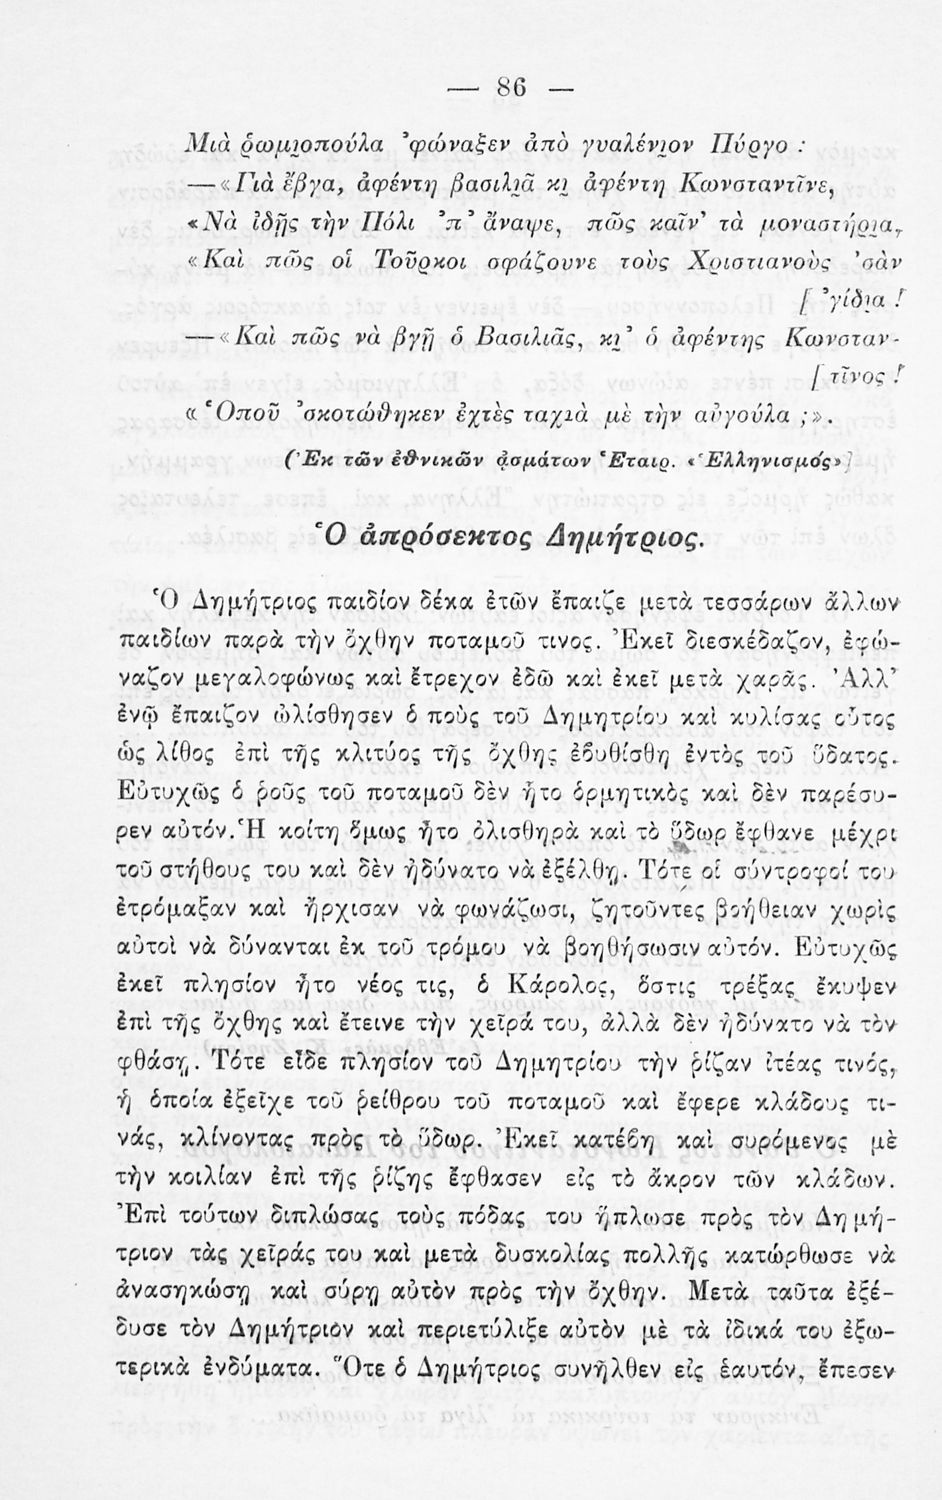 — 86 —
Μιὰ ῥωμῃοπούλα ᾿φώναξεν ἀπὸ γυαλένιον Πύργο :
— «Γιὰ ἔβγα, ἀφέντη βασιλιᾶ κι ἀφέντη Κωνσταντῖνε,
«Νὰ ἰδῇς τὴν Πόλι ᾿π᾿ ἄναψε, πῶς καῖν᾿ τὰ μοναστήρια,
«Καὶ πῶς οἱ Τοῦρκοι σφάζουνε τοὺς Χριστιανοὺς ᾿σὰν
[ ᾿γίδια !
— «Καὶ πῶς νὰ βγῇ ὁ Βασιλιᾶς, κι᾿ ὁ ἀφέντης Κωνσταν-
[ τῖνος !
« Ὁποῦ ᾿σκοτώθηκεν ἐχτὲς ταχιὰ μὲ τὴν αὐγούλα ;».
(Ἐκ τῶν ἐθνικῶν ᾀσμάτων Ἑταιρ. «Ἑλληνισμός»)
Ὁ ἀπρόσεκτος Δημήτριος.
Ὁ Δημήτριος παιδίον δέκα ἐτῶν ἔπαιζε μετὰ τεσσάρων ἄλλων
παιδίων παρὰ τὴν ὄχθην ποταμοῦ τινος. Ἐκεῖ διεσκέδαζον, ἐφώ-
ναζον μεγαλοφώνως καὶ ἔτρεχον ἐδῶ καὶ ἐκεῖ μετὰ χαρᾶς. Ἀλλ᾿
ἐνῷ ἔπαιζον ὠλίσθησεν ὁ ποὺς τοῦ Δημητρίου καὶ κυλίσας οὗτος
ὡς λίθος ἐπὶ τῆς κλιτύος τῆς ὄχθης ἐβυθίσθη ἐντὸς τοῦ ὕδατος.
Εὐτυχῶς ὁ ῥοῦς τοῦ ποταμοῦ δὲν ἦτο ὁρμητικὸς καὶ δὲν παρέσυ-
ρεν αὐτόν. Ἡ κοίτη ὅμως ἦτο ὀλισθηρὰ καὶ τὸ ὕδωρ ἔφθανε μέχρι
τοῦ στήθους του καὶ δὲν ἠδύνατο νὰ ἐξέλθῃ. Τότε οἱ σύντροφοί του
ἐτρόμαξαν καὶ ἤρχισαν νὰ φωνάζωσι, ζητοῦντες βοήθειαν χωρὶς
αὐτοὶ νὰ δύνανται ἐκ τοῦ τρόμου νὰ βοηθήσωσιν αὐτόν. Εὐτυχῶς
ἐκεῖ πλησίον ἦτο νέος τις, ὁ Κάρολος, ὅστις τρέξας ἔκυψεν
ἐπὶ τῆς ὄχθης καὶ ἔτεινε τὴν χεῖρά του, ἀλλὰ δὲν ἠδύνατο νὰ τὸν
φθάσῃ. Τότε εἶδε πλησίον τοῦ Δημητρίου τὴν ῥίζαν ἰτέας τινός,
ἡ ὁποία ἐξεῖχε τοῦ ῥείθρου τοῦ ποταμοῦ καὶ ἔφερε κλάδους τι-
νάς, κλίνοντας πρὸς τὸ ὕδωρ. Ἐκεῖ κατέβη καὶ συρόμενος μὲ
τὴν κοιλίαν ἐπὶ τῆς ῥίζης ἔφθασεν εἰς τὸ ἄκρον τῶν κλάδων.
Ἐπὶ τούτων διπλώσας τοὺς πόδας του ἥπλωσε πρὸς τὸν Δημή-
τριον τὰς χεῖράς του καὶ μετὰ δυσκολίας πολλῆς κατώρθωσε νὰ
ἀνασηκώσῃ καὶ σύρῃ αὐτὸν πρὸς τὴν ὄχθην. Μετὰ ταῦτα ἐξέ-
δυσε τὸν Δημήτριον καὶ περιετύλιξε αὐτὸν μὲ τὰ ἰδικά του ἐξω-
τερικὰ ἐνδύματα. Ὅτε ὁ Δημήτριος συνῆλθεν εἰς ἑαυτόν, ἔπεσεν